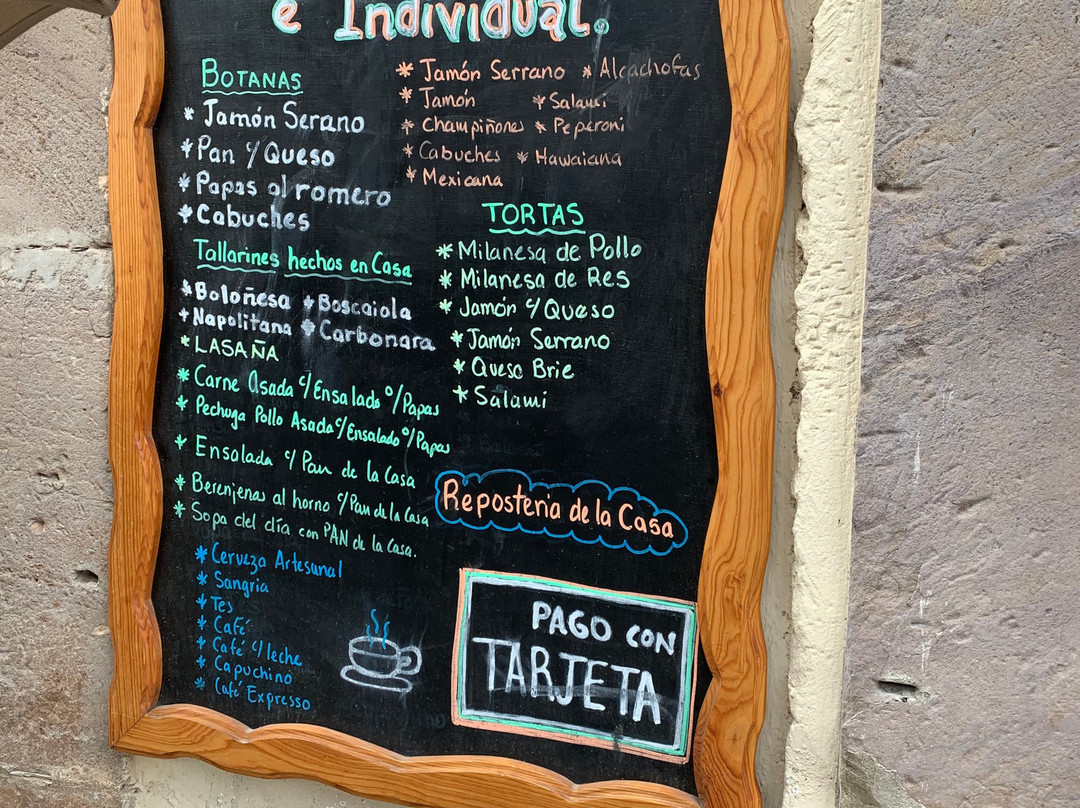 e Individual.
BOTANAS
* Jamón Serano
* Pan c/Queso
* Papas al romero
* Cabuches
Tallarines hechos en Casa
* Boloñesa * Boscaiola
* Napolitana * Carbonara
* LASAÑA
* Carne Asada c/Ensalada o/Papas
* Pechuga Pollo Asada c/Ensalada o/Papas
* Ensalada c/ Pan de la Casa
* Berenjenas al horno c/Pan de la Casa
* Sopa del día con PAN de la Casa.
* Cerveza Artesanal
* Sangria
* Tes
* Café
* Café c/leche
* Capuchino
* Café Expresso
* Jamón Serrano * Alcachofas
* Jamón * Salami
* Champiñones * Peperoni
* Cabuches * Hawaiana
* Mexicana
TORTAS
* Milanesa de Pollo
* Milanesa de Res
* Jamón c/Queso
* Jamón Serrano
* Queso Brie
* Salami
Reposteria de la Casa
PAGO CON
TARJETA